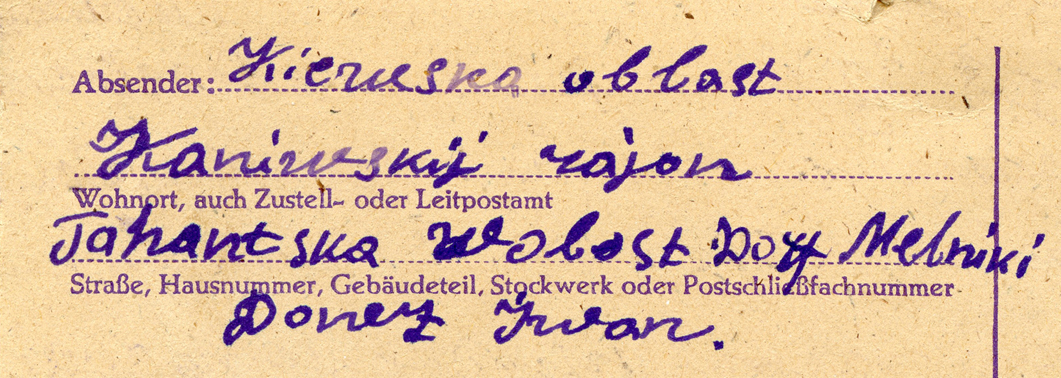 Absender: Kiewska oblast
Kaniwskij rajon
Wohnort, auch Zustell- oder Leitpostamt
Tahantska Wolost Dorf Melniki
Straße, Hausnummer, Gebäudeteil, Stockwerk oder Postschließfachnummer
Donez Iwan.